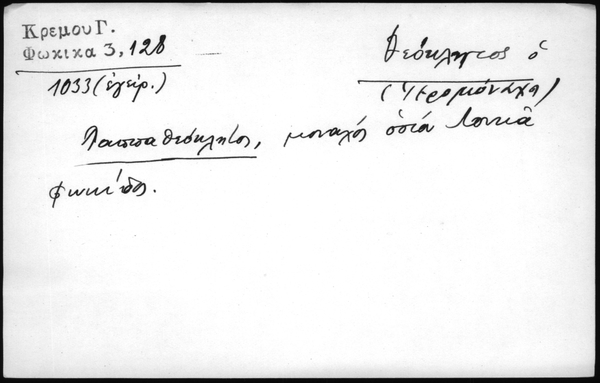 Κρεμου Γ.
Φωκικα 3, 128
1033 (ἐγείρ.)
Θεόκλητος ὁ
(Ἱερομόναχος)
Παππα Θεόκλητος, μοναχός ὁσίου Λουκᾶ
Φωκίδος.